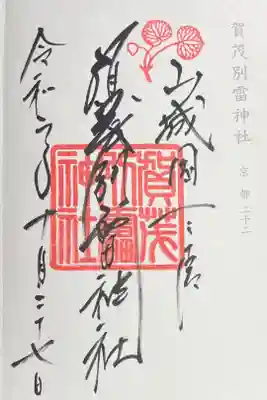 賀茂別雷神社
京都 二十二
山城国一之宮
賀茂別雷神社
賀茂
別雷
神社
令和 年十月二十七日